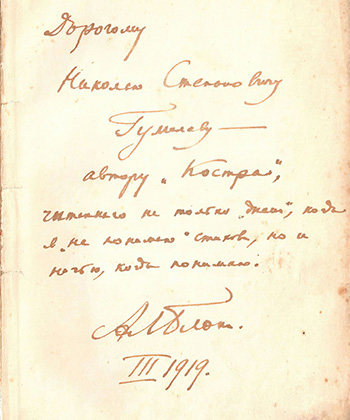 Дорогому
Николаю Степановичу
Гумилеву —
автору „Костра“,
читанного не только „днем“, когда
я „не понимаю“ стихов, но и
ночью, когда понимаю.
Ал Блок.
III 1919.